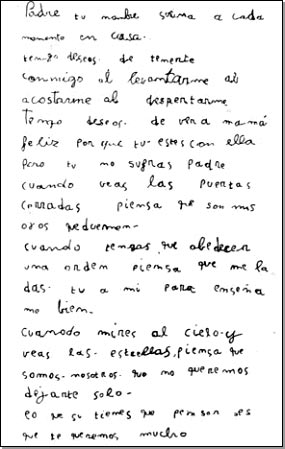 Padre tu nombre suena a cada
momento en casa.
tengo deseos. de tenerte
conmigo al levantarme al
acostarme al despertarme
Tengo deseos. de ver a mamá
feliz por que tu estes con ella
Pero tu no sufras Padre
cuando veas las puertas
cerradas piensa que son mis
ojos que duermen.
cuando tengas que obedecer
una orden piensa que me la
das. tu a mi para enseña
me bien.
cuando mires al cielo y
veas las. estrellas, piensa que
somos. nosotros. que no queremos
dejarte solo.
tienes que pensar es
que te queremos mucho